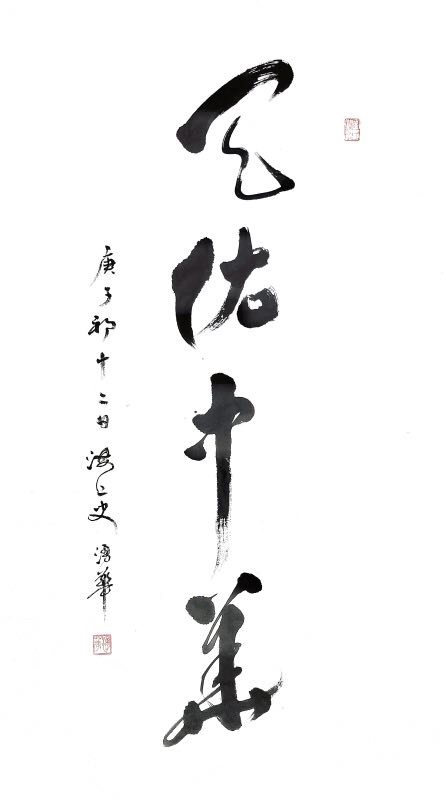 天佑中華
庚子初十二日海上史鴻華